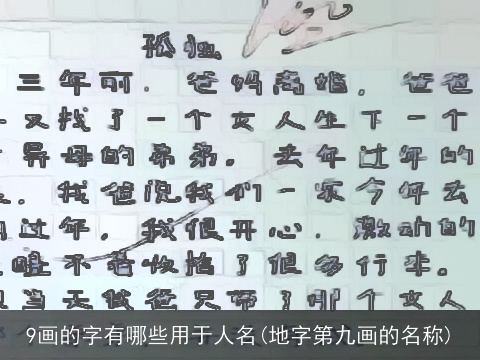 孤独
三年前,爸妈离婚,爸爸
又找了一个女人生下一个
异母的弟弟。去年过年的
我爸说我们一家今年去
过年,我很开心,激动的
不着收拾了很多行李。
当天我爸只带了那个女人
9画的字有哪些用于人名(地字第九画的名称)